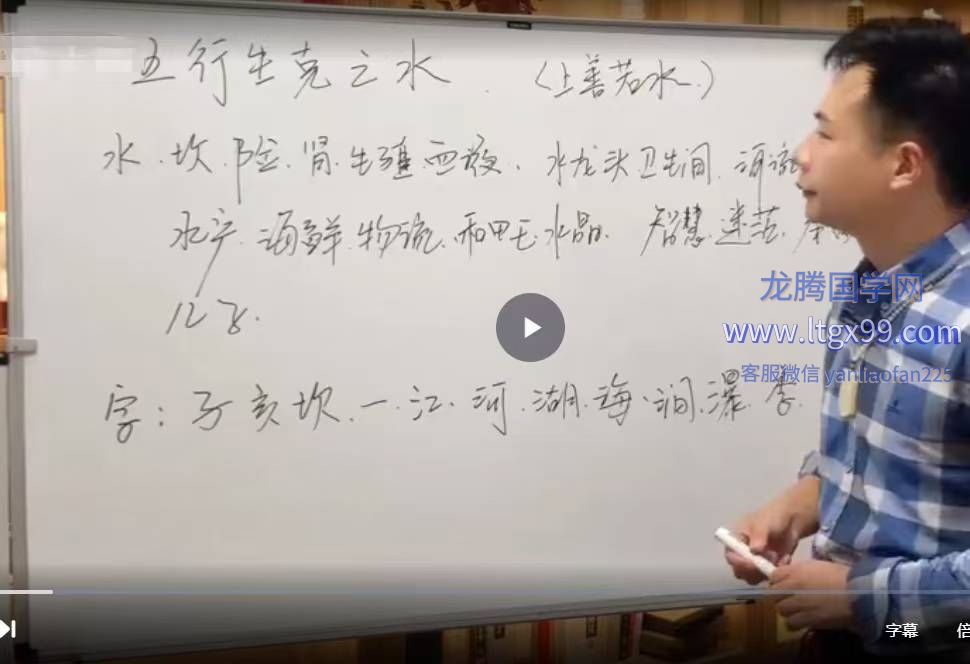 五行生克之水 (上善若水.)
水.坎.险.肾.生殖.血液.水龙头卫生间.河流
水产.海鲜.物流.和田玉.水晶. 智慧.迷茫.
字:子亥坎.一.江.河.湖.海.涧.瀑.李.
龙腾国学网
www.ltgx99.com
客服微信 yanliaofan225
字幕
倍